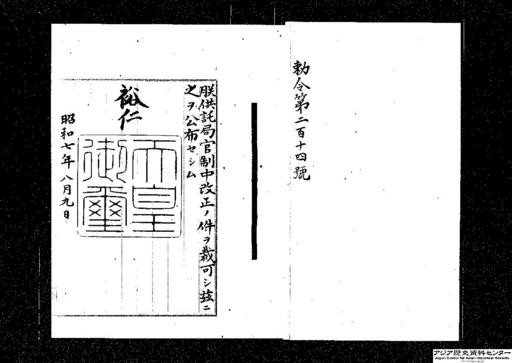 勅令第二百十四號
朕供託局官制中改正ノ件ヲ裁可シ玆ニ
之ヲ公布セシム
裕仁
天皇
御璽
昭和七年八月九日
アジア歴史資料センター
Japan Center for Asian Historical Records